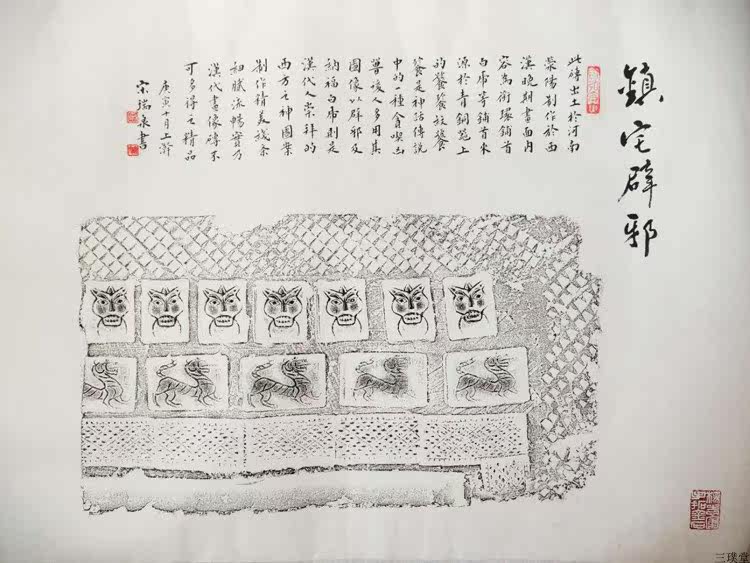 鎮宅辟邪
此磚出土於河南
滎陽制作於西
漢晚期畫面內
容為銜環鋪首
白虎等鋪首來
源於青銅器上
的饕餮紋饕
餮是神話傳說
中的一種貪喫凶
獸後人多用其
圖像以辟邪及
納福白虎則是
漢代人崇拜的
西方之神圖案
制作精美線條
細膩流暢實乃
漢代畫像磚不
可多得之精品
庚寅十月上澣
宋瑞泉書
三璞堂